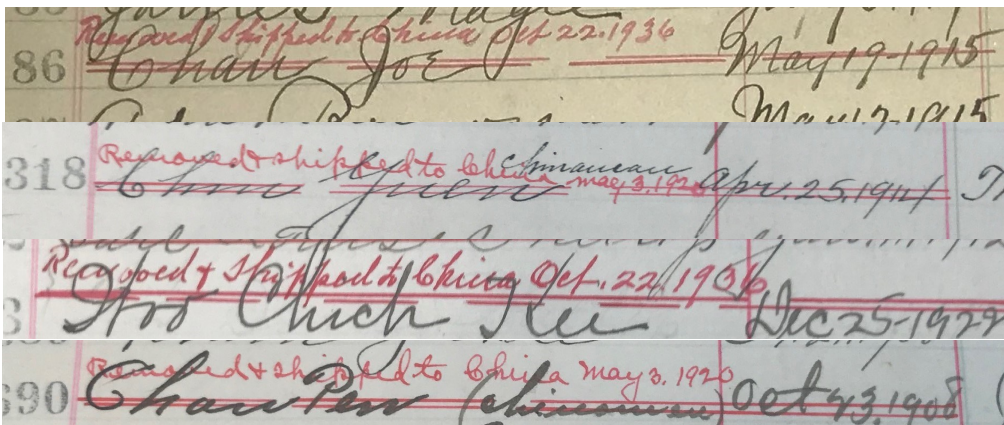 Removed & Shipped to China Oct 22. 1936
86 Chan Joe May 19-1915
1915
Removed & shipped to China may, 3. 192
318 Chinaman Apr. 25. 1914
Removed & Shipped to China Oct. 22, 1936
Woo Chuck Kee Dec 25-192
Removed & shipped to China May 3. 1920
90 Chan Pen (Chinaman) Oct 23. 1908